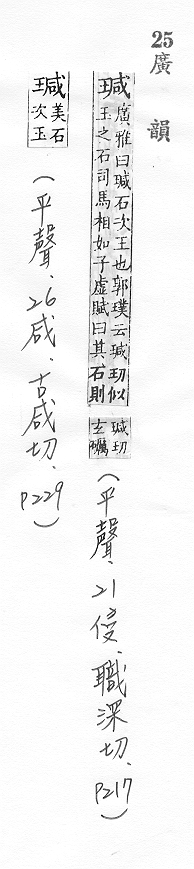 25廣韻
瑊廣雅曰瑊石次玉也郭璞云瑊玏似玉之石司馬相如子虛賦曰其石則瑊玏玄礪(平聲、21侵、職深切、P217)
瑊美石次玉(平聲、26咸、古咸切、P229)